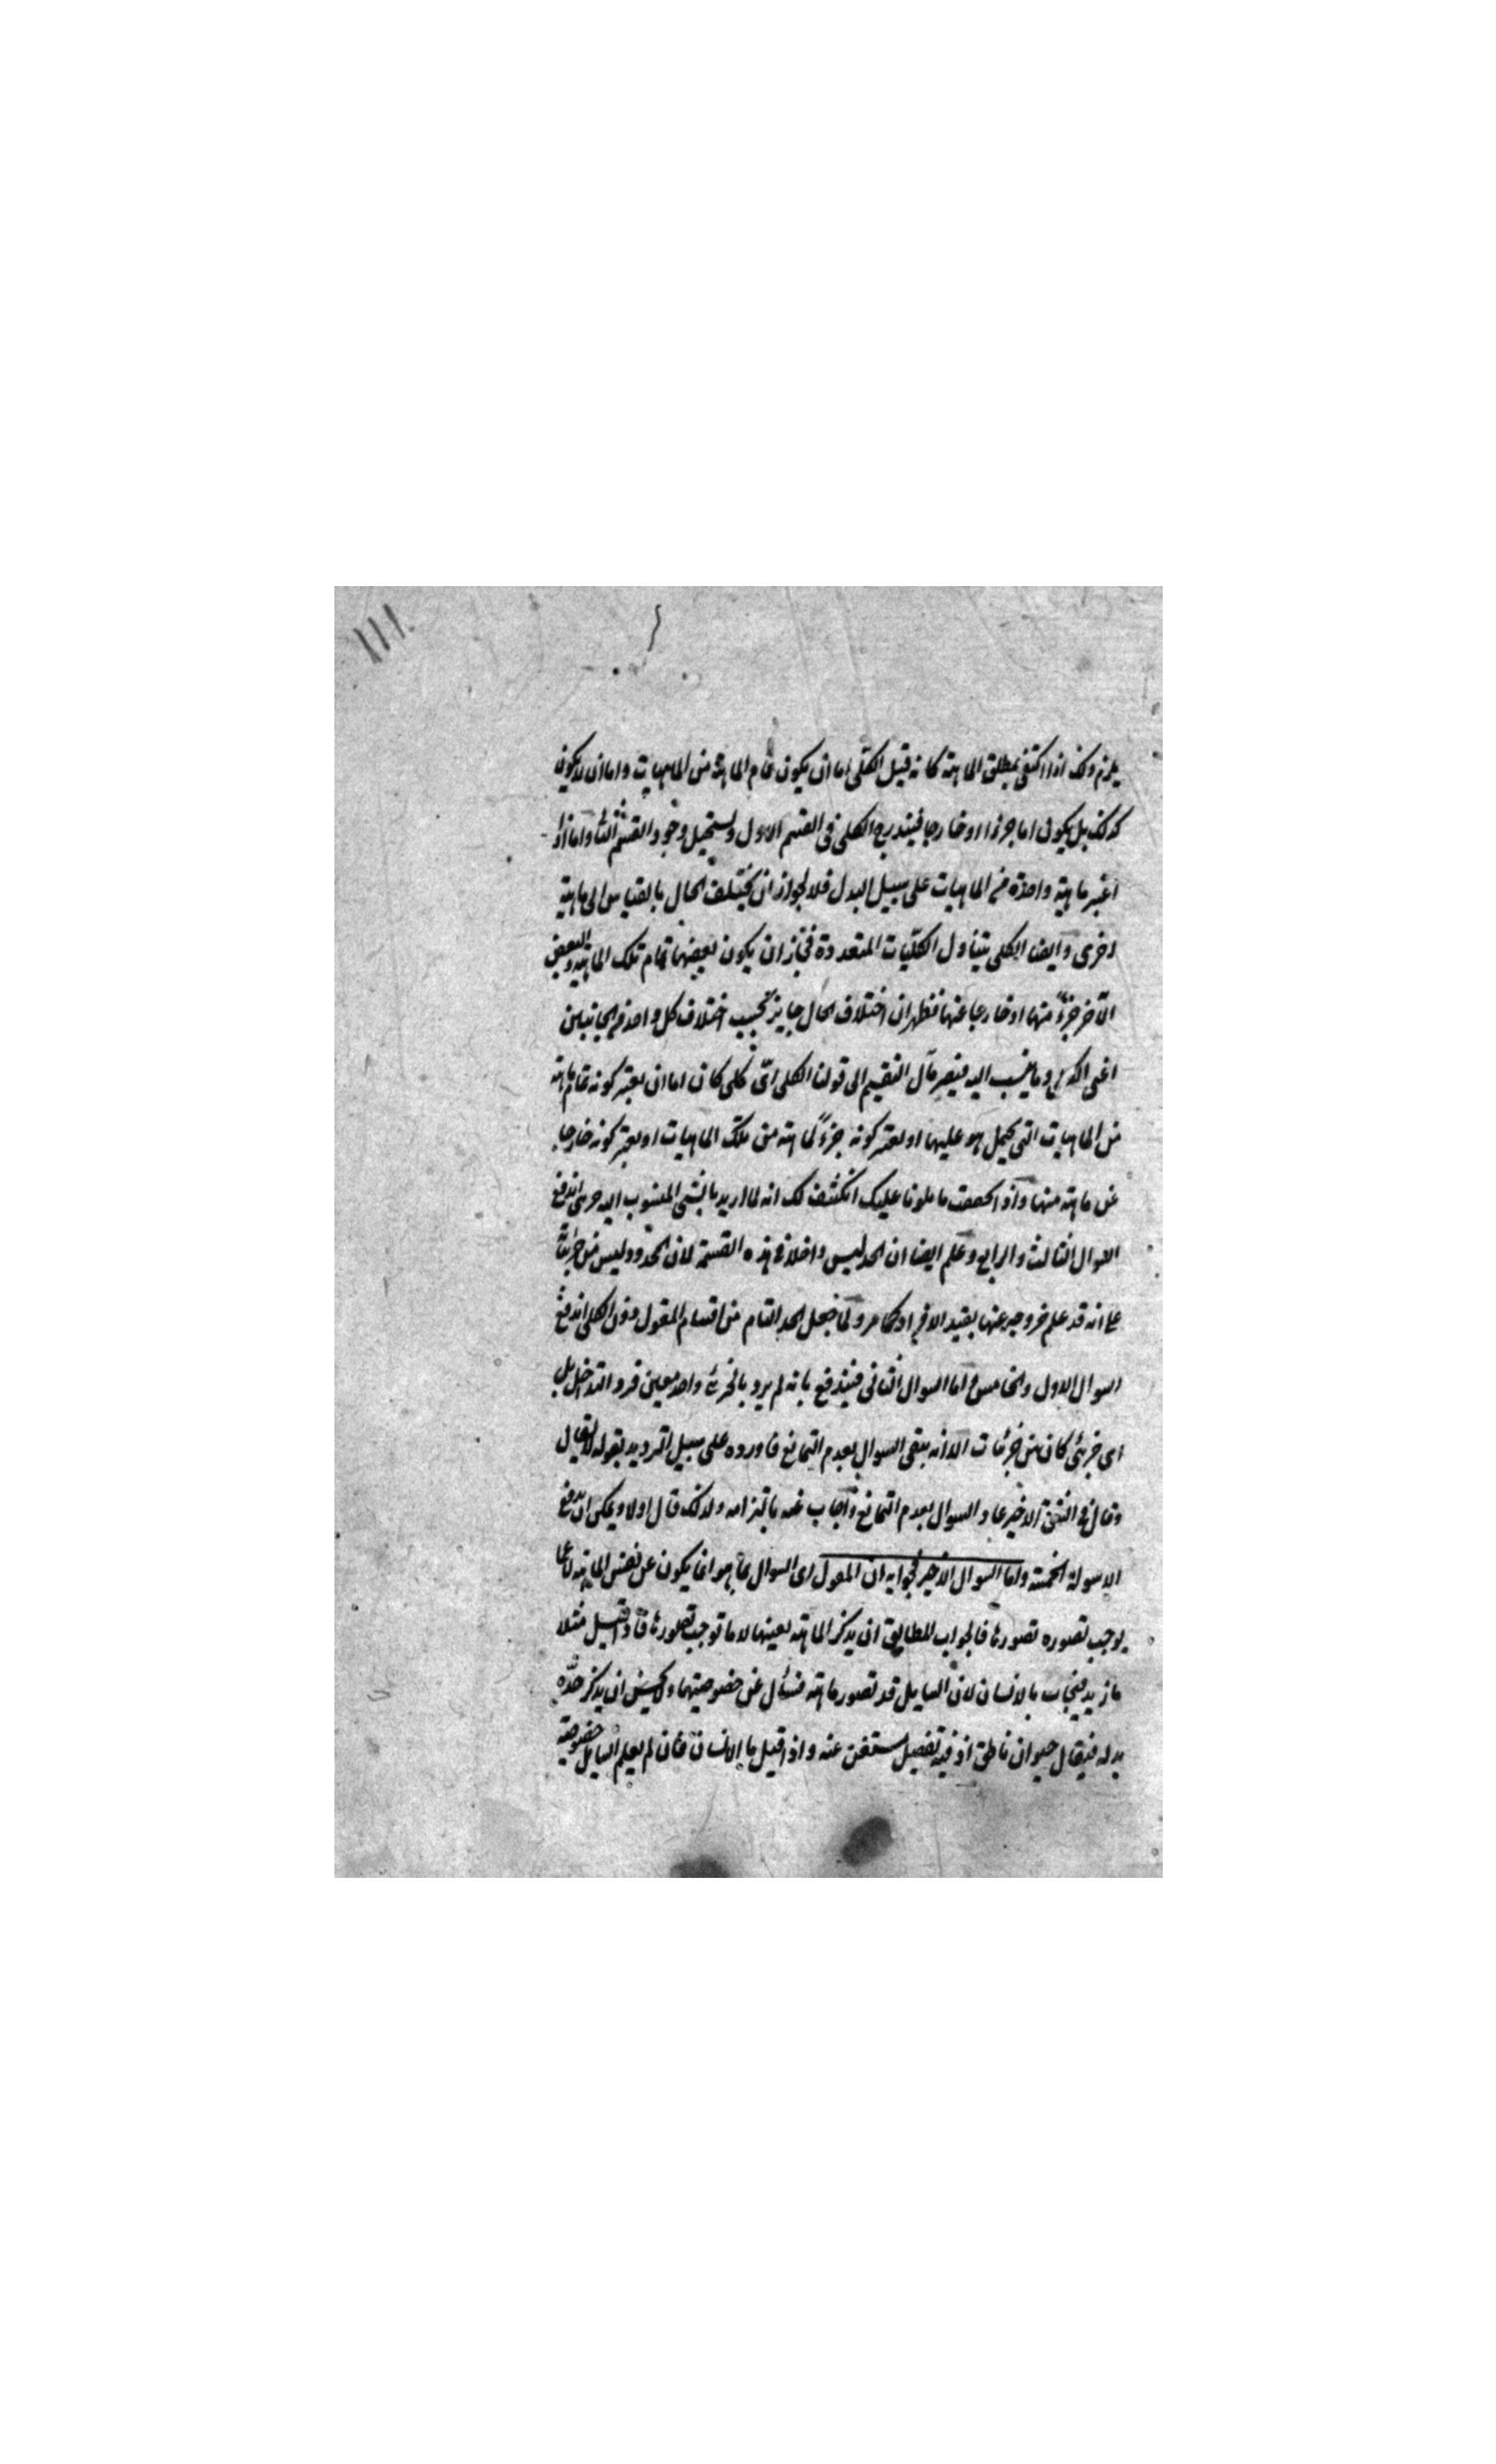 يلزم ذلك اذا اكتفى بمطلق الماهية كانه قيل الكلى اما ان يكون تمام الماهية من الماهيات واما ان لا يكون
كذلك بل يكون اما جزءا او خارجا فيندرج الكلى فى القسم الاول ويستحيل وجود القسم الثانى واما اذا
اعتبر ماهية واحدة من الماهيات على سبيل البدل فلا لجواز ان يختلف الحال بالقياس الى ماهية
اخرى وايضا الكلى يتناول الكليات المتعددة فجاز ان يكون بعضها تمام تلك الماهية والبعض
الآخر جزءً منها او خارجا عنها فظهر ان اختلاف الحال جايز بحسب اختلاف كل واحد من الجانبين
اعنى الكلى وما ينسب اليه فيصير مآل التقسيم الى قولنا الكلى اىّ كلى كان اما ان يعتبر كونه تمام ماهية
من الماهيات التى يحمل هو عليها او يعتبر كونه جزءً لماهية من تلك الماهيات او يعتبر كونه خارجا
عن ماهية منها واذا تحققت ما تلونا عليك انكشف لك انه لما اريد بالشى المنسوب اليه جزئى اندفع
السوال الثالث والرابع وعلم ايضا ان الحد ليس داخلا فى هذه القسمة لان المحدود ليس من جزئياته
على انه قد علم خروجه عنها بقيد الافراد كما مر ولما جعل الحد التام من اقسام المقول دون الكلى اندفع
السوال الاول والخامس واما السوال الثانى فيندفع بانه لم يرد بالجزئى واحد معين فرد التداخل بل
اى جزئى كان من جزئيات الا انه يبقى السوال بعدم التمانع فاورده على سبيل الترديد بقوله لا يقال
وقال فى الشق الاخير عاد السوال بعدم التمانع واجاب عنه بالتزامه ولذلك قال اولا ويمكن ان يدفع
الاسولة الخمسة واما السوال الاخير فجوابه ان المقول اى السوال بما هو انما يكون عن نفس الماهية لا عما
يوجب تصوره تصورها فالجواب المطابق ان يذكر الماهية بعينها لا ما توجب تصورها فاذا قيل مثلا
ما زيد فيجاب بالانسان لان السايل قد تصور ماهية فسأل عن خصوصيتها ولا يحسن ان يذكر حدّه
بدله فيقال حيوان ناطق اذ فيه تفصيل مستغن عنه واذا قيل ما الانسان فان لم يعلم السايل خصوصية